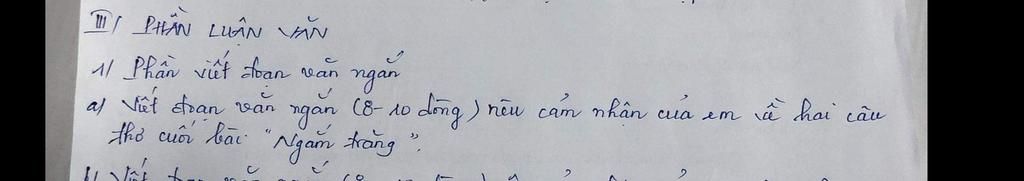 III/ PHẦN LUẬN VĂN
1/ Phần viết đoạn văn ngắn
a/ Viết đoạn văn ngắn (8-10 dòng) nêu cảm nhận của em về hai câu
thơ cuối bài "Ngắm trăng".